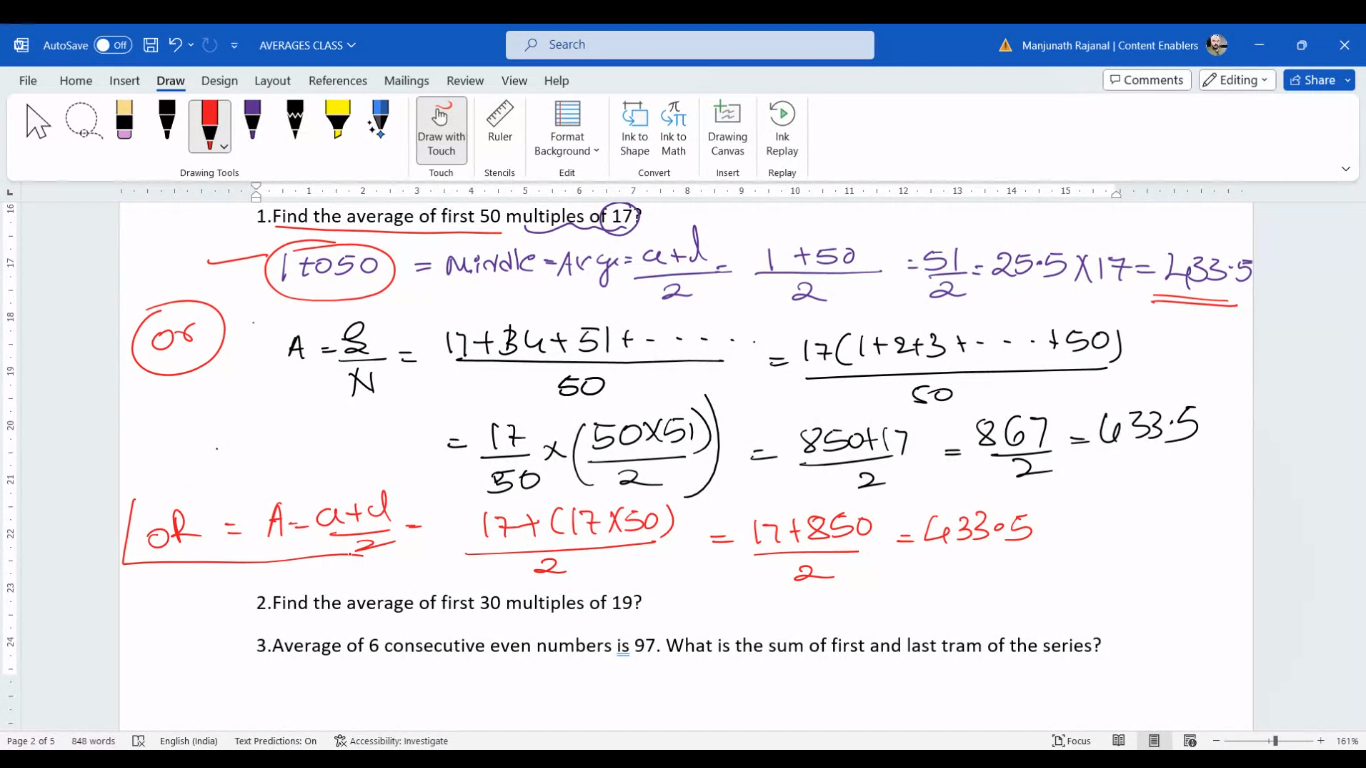 AutoSave Off AVERAGES CLASS Search Manjunath Rajanal | Content Enablers
File Home Insert Draw Design Layout References Mailings Review View Help Comments Editing Share
Draw with Touch Ruler Format Background Ink to Shape Ink to Math Drawing Canvas Ink Replay
Drawing Tools Touch Stencils Edit Convert Insert Replay
1 2 3 4 5 6 7 8 9 10 11 12 13 14 15
1.Find the average of first 50 multiples of 17?
1 to 50 = Middle = Avg = a+l/2 = 1+50/2 = 51/2 = 25.5 X 17 = 433.5
or
A = S/N = 17+34+51+...../50 = 17(1+2+3+....+50)/50
= 17/50 × (50×51/2) = 850+17/2 = 867/2 = 433.5
OR = A = a+l/2 = 17+(17×50)/2 = 17+850/2 = 433.5
2.Find the average of first 30 multiples of 19?
3.Average of 6 consecutive even numbers is 97. What is the sum of first and last tram of the series?
16
17
18
19
20
21
22
23
24
Page 2 of 5 848 words English (India) Text Predictions: On Accessibility: Investigate Focus 161%